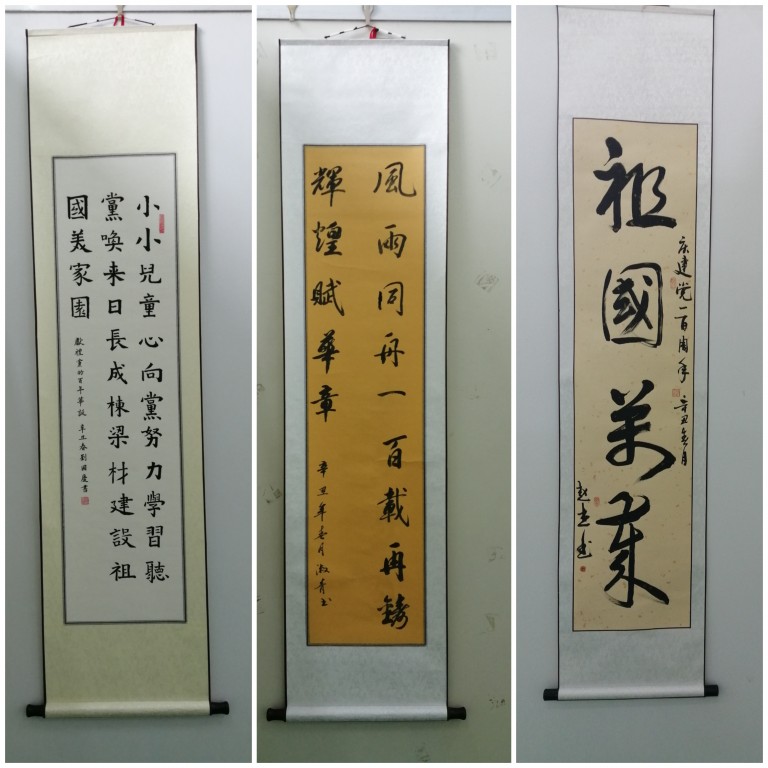 小小兒童心向黨努力學習聽
黨喚来日長成棟梁材建設祖
國美家園
獻禮黨的百年華誕 辛丑春劉國慶書
風雨同舟一百載再鑄
輝煌賦華章
辛丑年春月淑青书
祖國萬歲
庆建党一百周年 辛丑年春月
赵